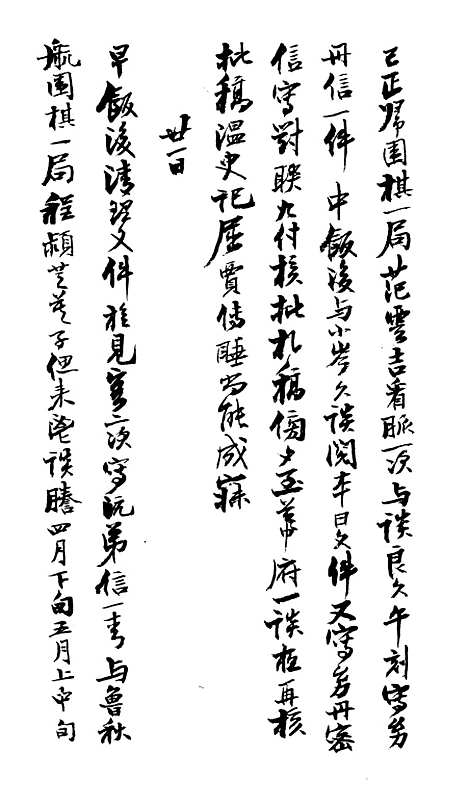 已正歸圍棋一局范雲吉看脈一次与談良久午刻寫芳
丹信一件中飯後与小岑久談閱本日文件又寫芳丹密
信寫對聯九付核批札稿傍夕至幕府一談夜再核
批稿溫史記屈賈傳睡尚能成寐
廿一日
早飯後清理文件旋見客二次寫沅弟信一書与魯秋
航圍棋一局程潁芝子但來鬯談謄四月下旬五月上中旬